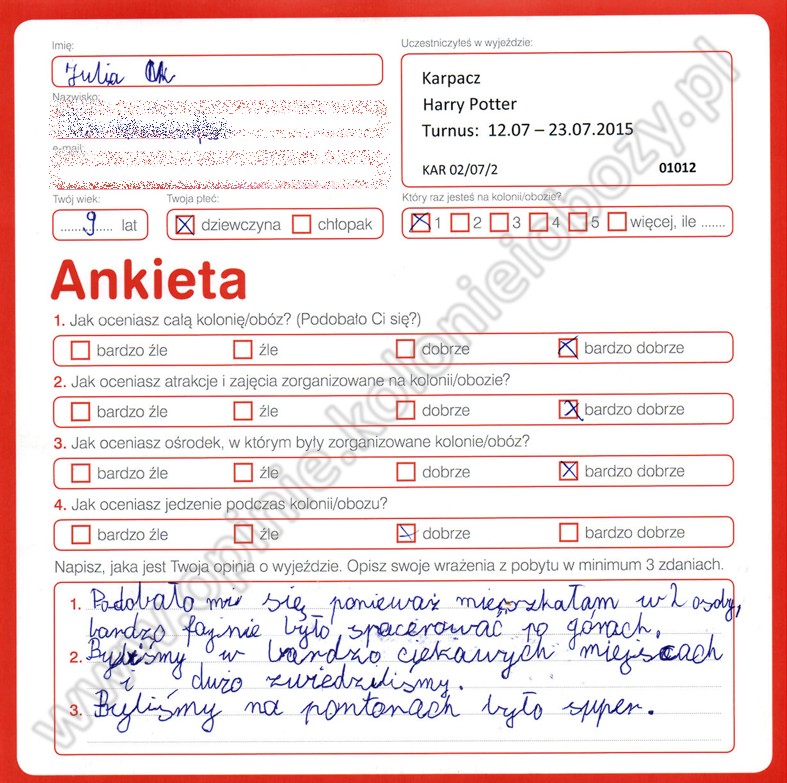 Imię:
Julia
Nazwisko:
e-mail:
Twój wiek:
9 lat
Twoja płeć:
dziewczyna chłopak
Uczestniczyłeś w wyjeździe:
Karpacz
Harry Potter
Turnus: 12.07 – 23.07.2015
KAR 02/07/2 01012
Który raz jesteś na kolonii/obozie?
1 2 3 4 5 więcej, ile .......
Ankieta
1. Jak oceniasz całą kolonię/obóz? (Podobało Ci się?)
bardzo źle źle dobrze bardzo dobrze
2. Jak oceniasz atrakcje i zajęcia zorganizowane na kolonii/obozie?
bardzo źle źle dobrze bardzo dobrze
3. Jak oceniasz ośrodek, w którym były zorganizowane kolonie/obóz?
bardzo źle źle dobrze bardzo dobrze
4. Jak oceniasz jedzenie podczas kolonii/obozu?
bardzo źle źle dobrze bardzo dobrze
Napisz, jaka jest Twoja opinia o wyjeździe. Opisz swoje wrażenia z pobytu w minimum 3 zdaniach.
1. Podobało mi się, ponieważ mieszkałam w 2 osoby,
bardzo fajnie było spacerować po górach.
2. Byliśmy w bardzo ciekawych miejscach
i dużo zwiedziliśmy.
3. Byliśmy na pontonach było super.
www.opinie.kolonieiobozy.pl